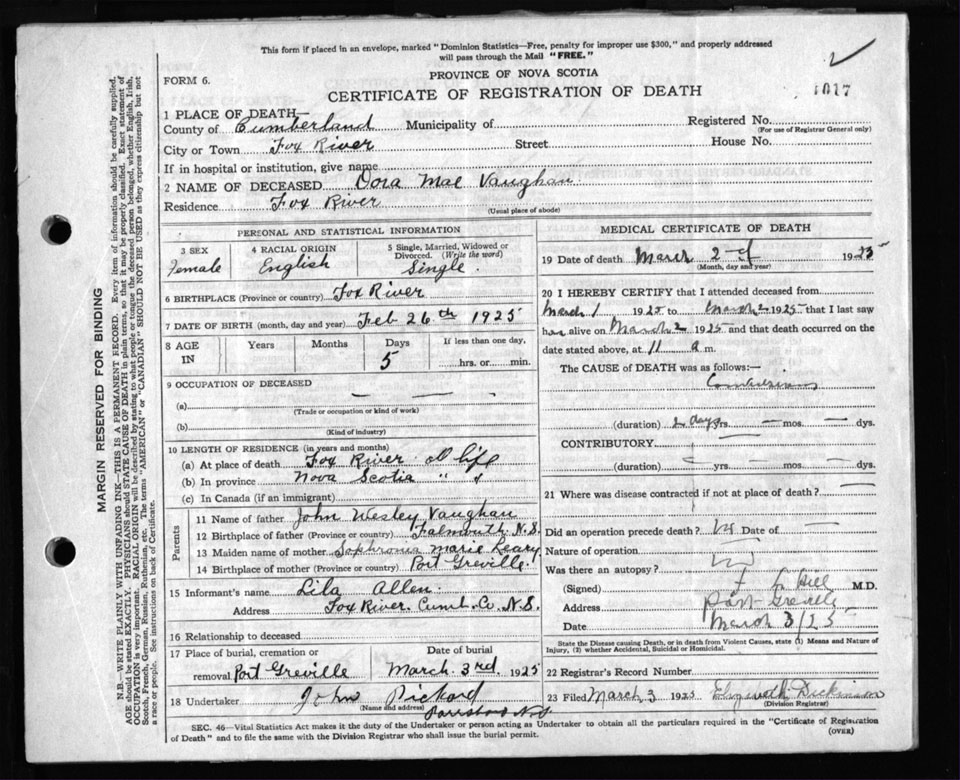 This form if placed in an envelope, marked "Dominion Statistics—Free, penalty for improper use $300," and properly addressed
will pass through the Mail "FREE."
FORM 6.
PROVINCE OF NOVA SCOTIA
CERTIFICATE OF REGISTRATION OF DEATH
1017
1 PLACE OF DEATH
County of Cumberland Municipality of Registered No.
(For use of Registrar General only)
City or Town Fox River Street House No.
If in hospital or institution, give name
2 NAME OF DECEASED Dora Mae Vaughan
Residence Fox River
(Usual place of abode)
PERSONAL AND STATISTICAL INFORMATION
3 SEX Female
4 RACIAL ORIGIN English
5 Single, Married, Widowed or Divorced. (Write the word) Single.
6 BIRTHPLACE (Province or country) Fox River
7 DATE OF BIRTH (month, day and year) Feb 26th 1925
8 AGE IN Years Months Days 5 If less than one day, hrs. or min.
9 OCCUPATION OF DECEASED
(a) — — —
(Trade or occupation or kind of work)
(b)
(Kind of industry)
10 LENGTH OF RESIDENCE (in years and months)
(a) At place of death Fox River all life
(b) In province Nova Scotia " "
(c) In Canada (if an immigrant)
Parents
11 Name of father John Wesley Vaughan
12 Birthplace of father (Province or country) Falmouth N.S.
13 Maiden name of mother Sophronia Marie Leary
14 Birthplace of mother (Province or country) Port Greville.
15 Informant's name Lila Allen.
Address Fox River. Cumb. Co. N.S.
16 Relationship to deceased
17 Place of burial, cremation or removal Port Greville
Date of burial March 3rd 1925
18 Undertaker John Pickard
(Name and address) Parrsboro N.S.
MEDICAL CERTIFICATE OF DEATH
19 Date of death March 2 1925
(Month, day and year)
20 I HEREBY CERTIFY that I attended deceased from
March 1 1925 to March 2 1925 that I last saw
her alive on March 2 1925 and that death occurred on the
date stated above, at 11 a m.
The CAUSE of DEATH was as follows:—
Convulsions
(duration) 2 days yrs. — mos. — dys.
CONTRIBUTORY
(duration) yrs. — mos. — dys.
21 Where was disease contracted if not at place of death? —
Did an operation precede death? No Date of —
Nature of operation
Was there an autopsy? No
(Signed) Hill M.D.
Address Port Greville
Date March 3/25
State the Disease causing Death, or in death from Violent Causes, state (1) Means and Nature of
Injury, (2) whether Accidental, Suicidal or Homicidal.
22 Registrar's Record Number
23 Filed March 3 1925 Elizabeth Dickinson
(Division Registrar)
SEC. 46—Vital Statistics Act makes it the duty of the Undertaker or person acting as Undertaker to obtain all the particulars required in the "Certificate of Registration
of Death" and to file the same with the Division Registrar who shall issue the burial permit.
(OVER)
MARGIN RESERVED FOR BINDING
N.B.—WRITE PLAINLY WITH UNFADING INK—THIS IS A PERMANENT RECORD. Every item of information should be carefully supplied.
AGE should be stated EXACTLY. PHYSICIANS should STATE CAUSE OF DEATH in plain terms, so that it may be properly classified. Exact statement of
OCCUPATION is very important. RACIAL ORIGIN will be described by stating to what people or tongue the deceased person belonged, whether English, Irish,
Scotch, French, German, Russian, Ruthenian, etc. The terms "AMERICAN" or "CANADIAN" SHOULD NOT BE USED as they express citizenship but not
a race or people. See instructions on back of Certificate.